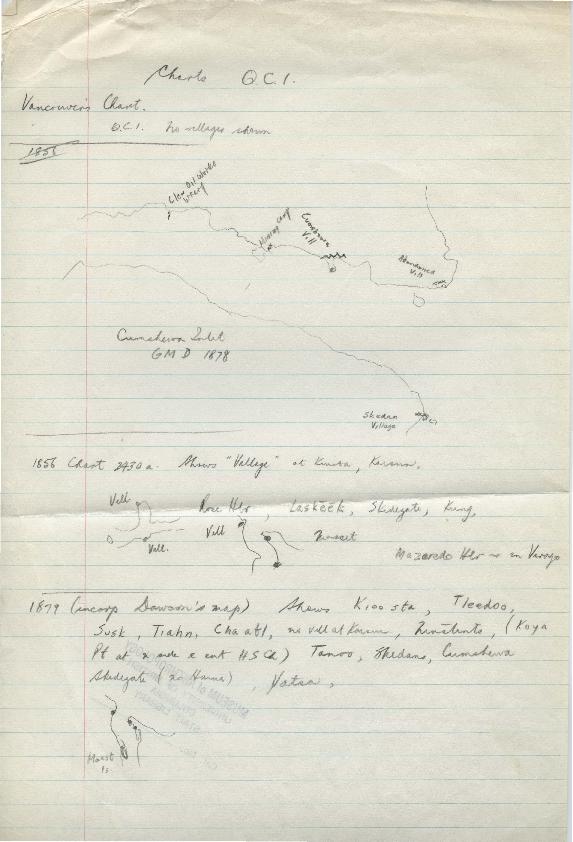 Charts Q.C.I.
Vancouver's Chart.
Q.C.I. No villages shewn
1856
Clam Oil Works
Wharf
Mining Camp
Cumshewa
Vill
Abandoned
Vill
Cumshewa Inlet
GMD 1878
Skedan
Village
1856 Chart 2430a. Shews "Village" at Kiusta,
Vill
Rose Hbr, Laskeek, Skidegate, Kung,
Vill
Vill.
Masset
Mazaredo Hbr
1879 (incorp Dawson's map) Shews Kioosta, Tleedoo,
Susk, Tiahn, Chaatl, no vill at Ninstints, (Koya
Pt at n side e ent HSCh) Tanoo, Skedans, Cumshewa
Skidegate (no Haina), Yatza,
Masset
Is